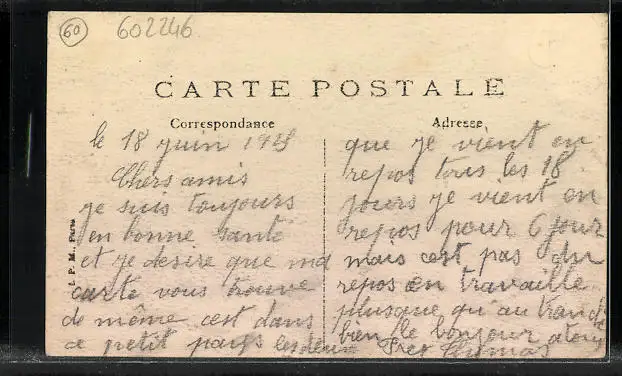 60
602246
CARTE POSTALE
Correspondance
Adresse
le 18 juin
Chers amis
je suis toujours
en bonne santé
et je desire que ma
carte vous trouve
de même cest dans
ce petit pays les deux
que je vient en
repos tous les 18
jours je vient en
repos pour 6 jour
mais cest pas du
repos en travaille
plusque qu'au
bien le bonjour a tous
I. P. M., Paris